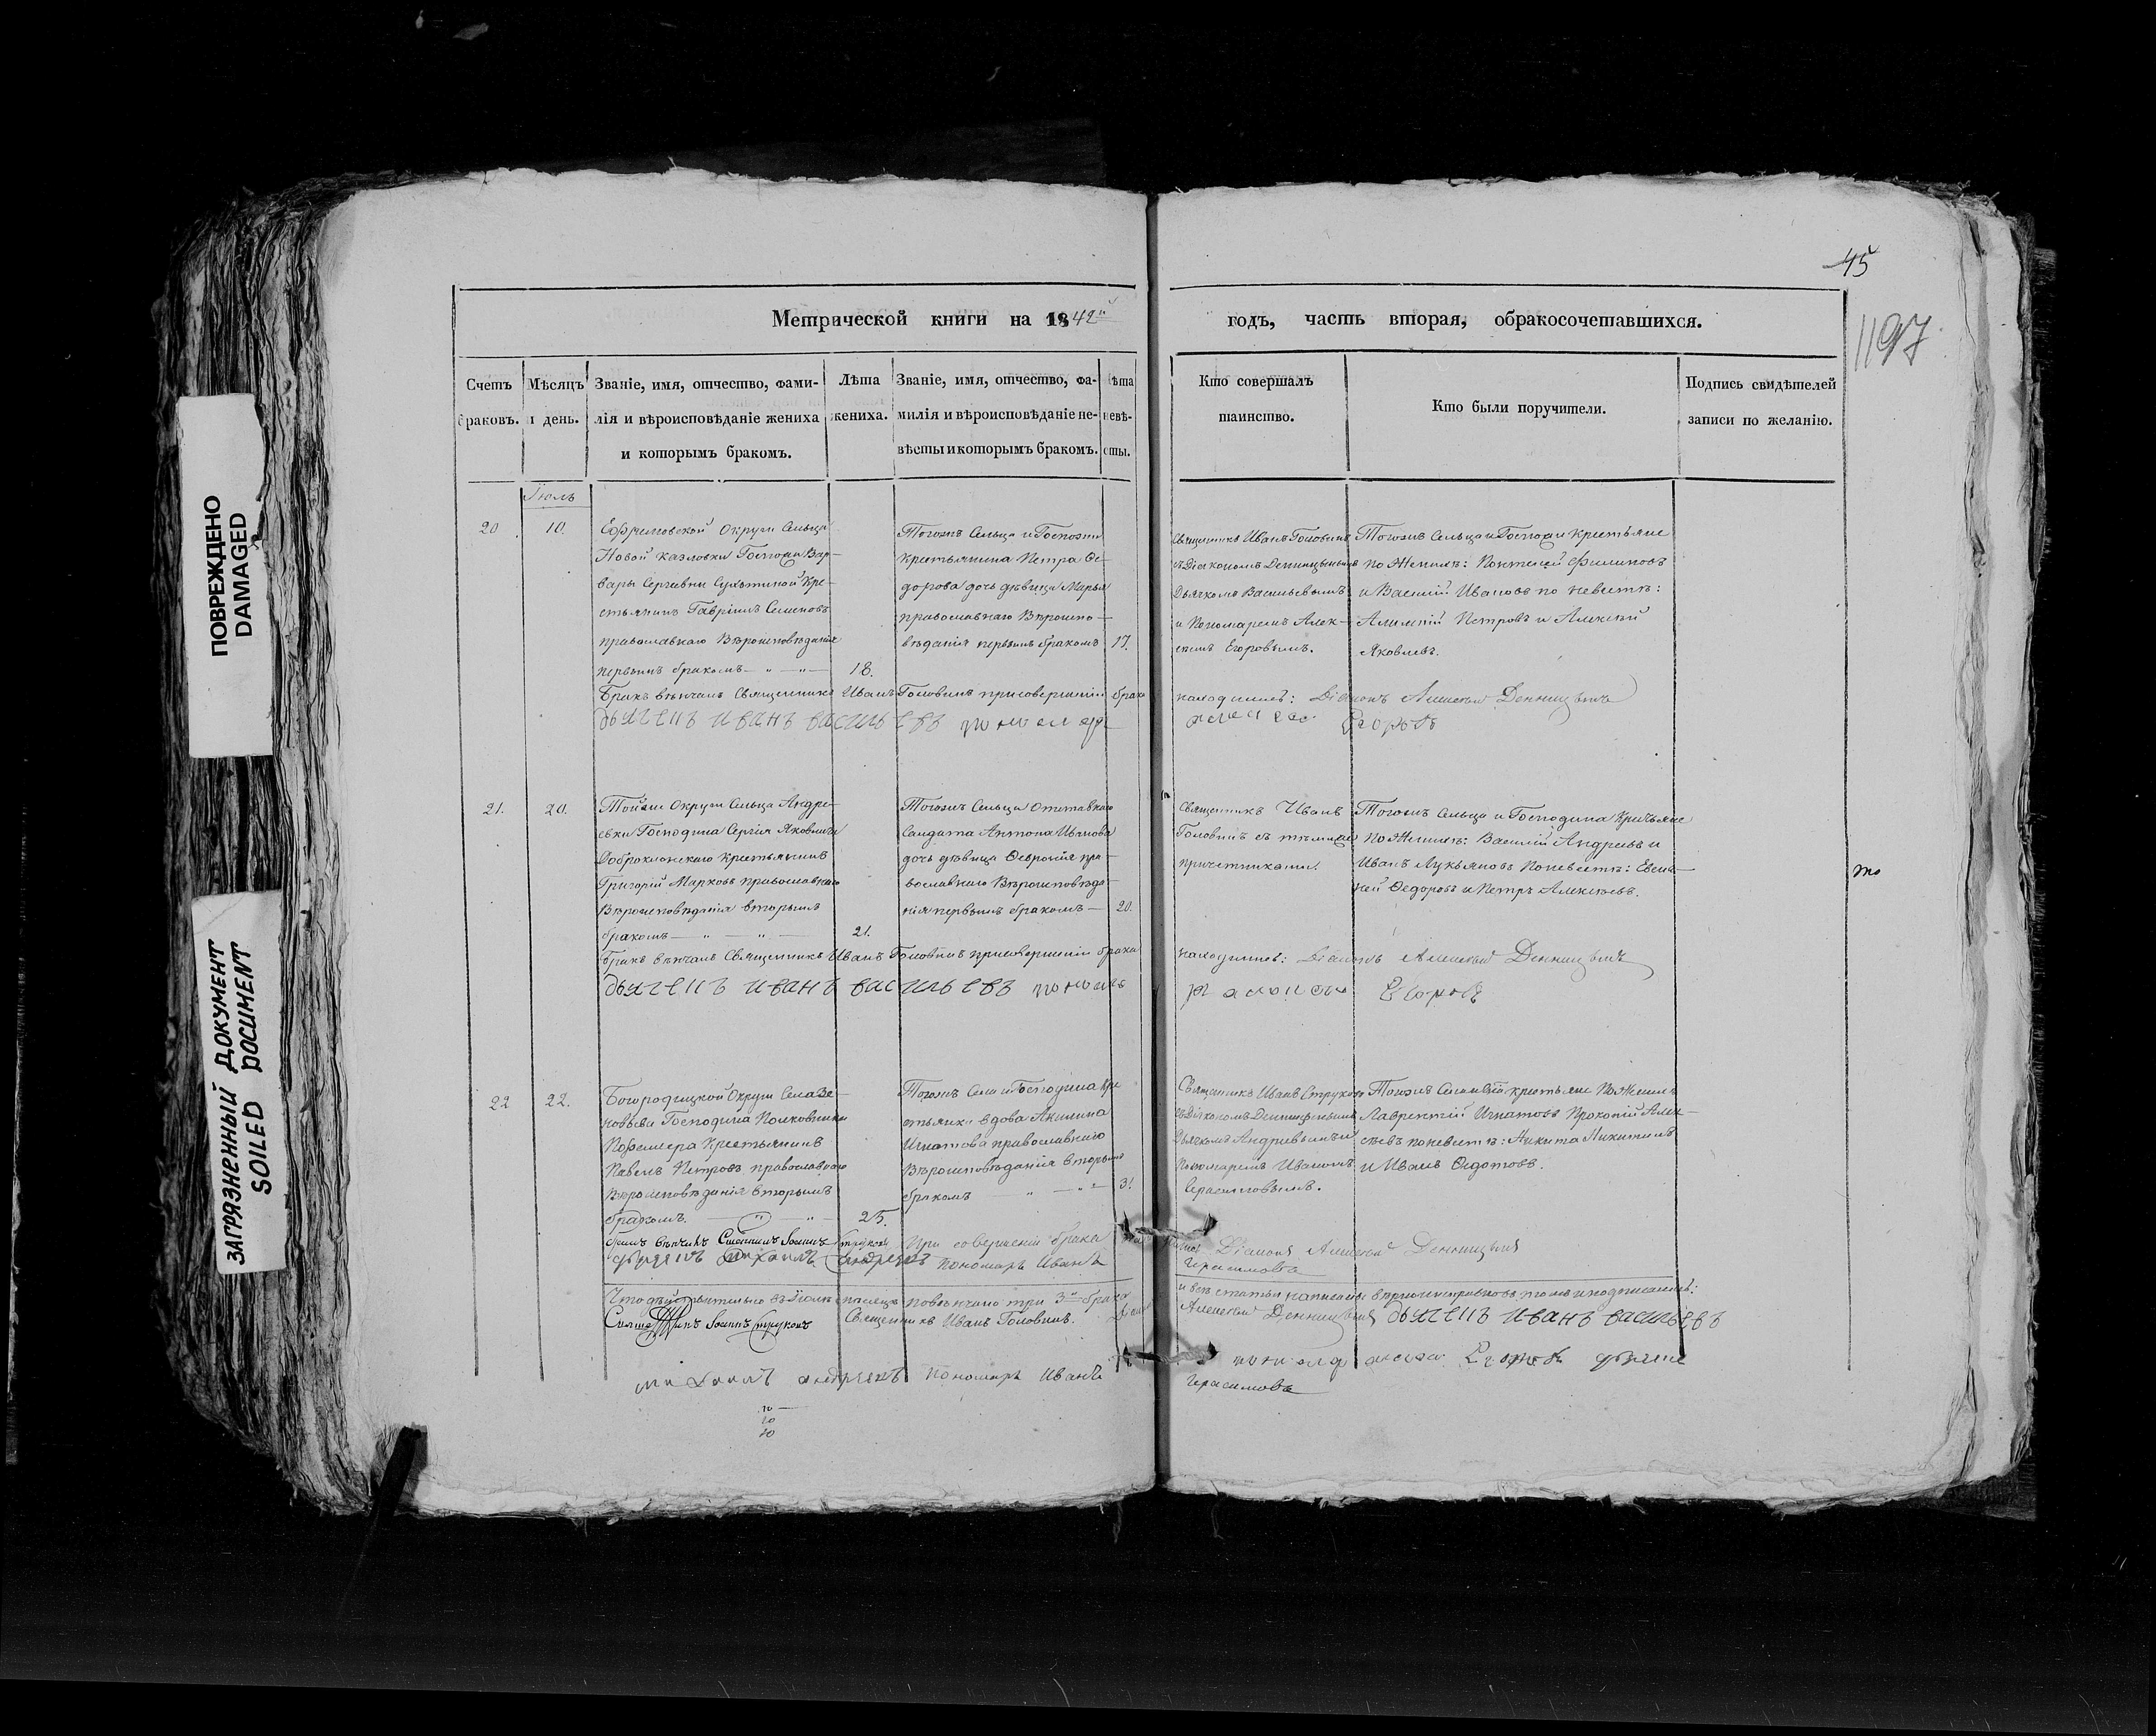 ПОВРЕЖДЕНО
DAMAGED
ЗАГРЯЗНЕННЫЙ ДОКУМЕНТ
SOILED DOCUMENT
45
1197
Метрической книги на 1842й годъ, часть вторая, обракосочетавшихся.
Счетъ браковъ.
Мѣсяцъ и день.
Званіе, имя, отчество, фами-
лія и вѣроисповѣданіе жениха
и которымъ бракомъ.
Лѣта
жениха.
Званіе, имя, отчество, фа-
милія и вѣроисповѣданіе не-
вѣсты и которымъ бракомъ.
лѣта
невѣ-
сты.
Кто совершалъ
таинство.
Кто были поручители.
Подпись свидѣтелей
записи по желанію.
Іюль
20
10.
Ефримовской Округи Сельца
Новой Казловки Госпожи Вар-
вары Сергѣевны Сухотиной Кре-
стьянинъ Гавріилъ Семеновъ
православнаго Вѣроисповѣданія
первымъ бракомъ
18.
Тогожъ Сельца и Госпожи
крестьянина Петра Ѳе-
дорова дочь дѣвица Марья
православнаго Вѣроиспо-
вѣданія первымъ бракомъ
17.
Священникъ Иванъ Головинъ
съ Діакономъ Денницынымъ
Дьячкомъ Васильевымъ
и Пономаремъ Алек-
сѣемъ Егоровымъ.
Тогожъ Сельца и Госпожи крестьяне
по Женихѣ: Филиповъ
и Василій Ивановъ по невестѣ:
Петровъ и Алексѣй
Яковлевъ.
Бракъ вѣнчалъ Священникъ Иванъ Головинъ присовершеніи брака находились: Діаконъ Алексѣй Денницынъ
дьячекъ иванъ васильевъ пономарь Егоровъ
21.
20.
Тойже Округи Сельца Андре-
евки Господина Сергія Яковлича
крестьянинъ
Григорій Марковъ православнаго
Вѣроисповѣданія вторымъ
бракомъ
21.
Тогожъ Сельца отставнаго
Салдата Антона Иванова
дочь дѣвица Ѳевронія пра-
вославнаго Вѣроисповѣда-
нія первымъ бракомъ
20.
Священникъ Иванъ
Головинъ съ тѣмиже
причетниками.
Тогожъ Сельца и Господина Крестьяне
по Женихѣ: Василій Андреевъ и
Иванъ Лукьяновъ по невестѣ:
Ѳедоровъ и Петръ Алексѣевъ.
то
Бракъ вѣнчалъ Священникъ Иванъ Головинъ присовершеніи брака находились: Діаконъ Алексѣй Денницынъ
дьячекъ иванъ васильевъ Егоровъ
22
22.
Богородицкой Округи Села
Господина Полковника
Крестьянинъ
Павелъ Петровъ православнаго
Вѣроисповѣданія вторымъ
бракомъ.
25.
Тогожъ Села и Господина кре-
стьянка вдова Акилина
Игнатова православнаго
Вѣроисповѣданія вторымъ
бракомъ
31
Священникъ Иванъ Струковъ
съ Діакономъ Денницынымъ
Дьячкомъ Андреевымъ и
Пономаремъ Иваномъ
Герасимовымъ.
Тогожъ Села крестьяне по Женихѣ
Лаврентій Игнатовъ Прокопій Алек-
сѣевъ по невестѣ: Никита Никитинъ
и Иванъ Ѳедотовъ.
вѣнчалъ Священникъ Іоаннъ Струковъ При совершеніи брака Діаконъ Алексѣй Денницынъ
михаилъ андреевъ пономарь Иванъ Герасимовъ
Что дѣйствительно въ Іюлѣ мѣсяцѣ повѣнчано три 3и брака и всѣ статьи написаны въ томъ и подписались:
Священникъ Іоаннъ Струковъ Священникъ Иванъ Головинъ. Алексѣй Денницынъ дьячекъ иванъ васильевъ
Егоровъ
михаилъ андреевъ пономарь Иванъ Герасимовъ